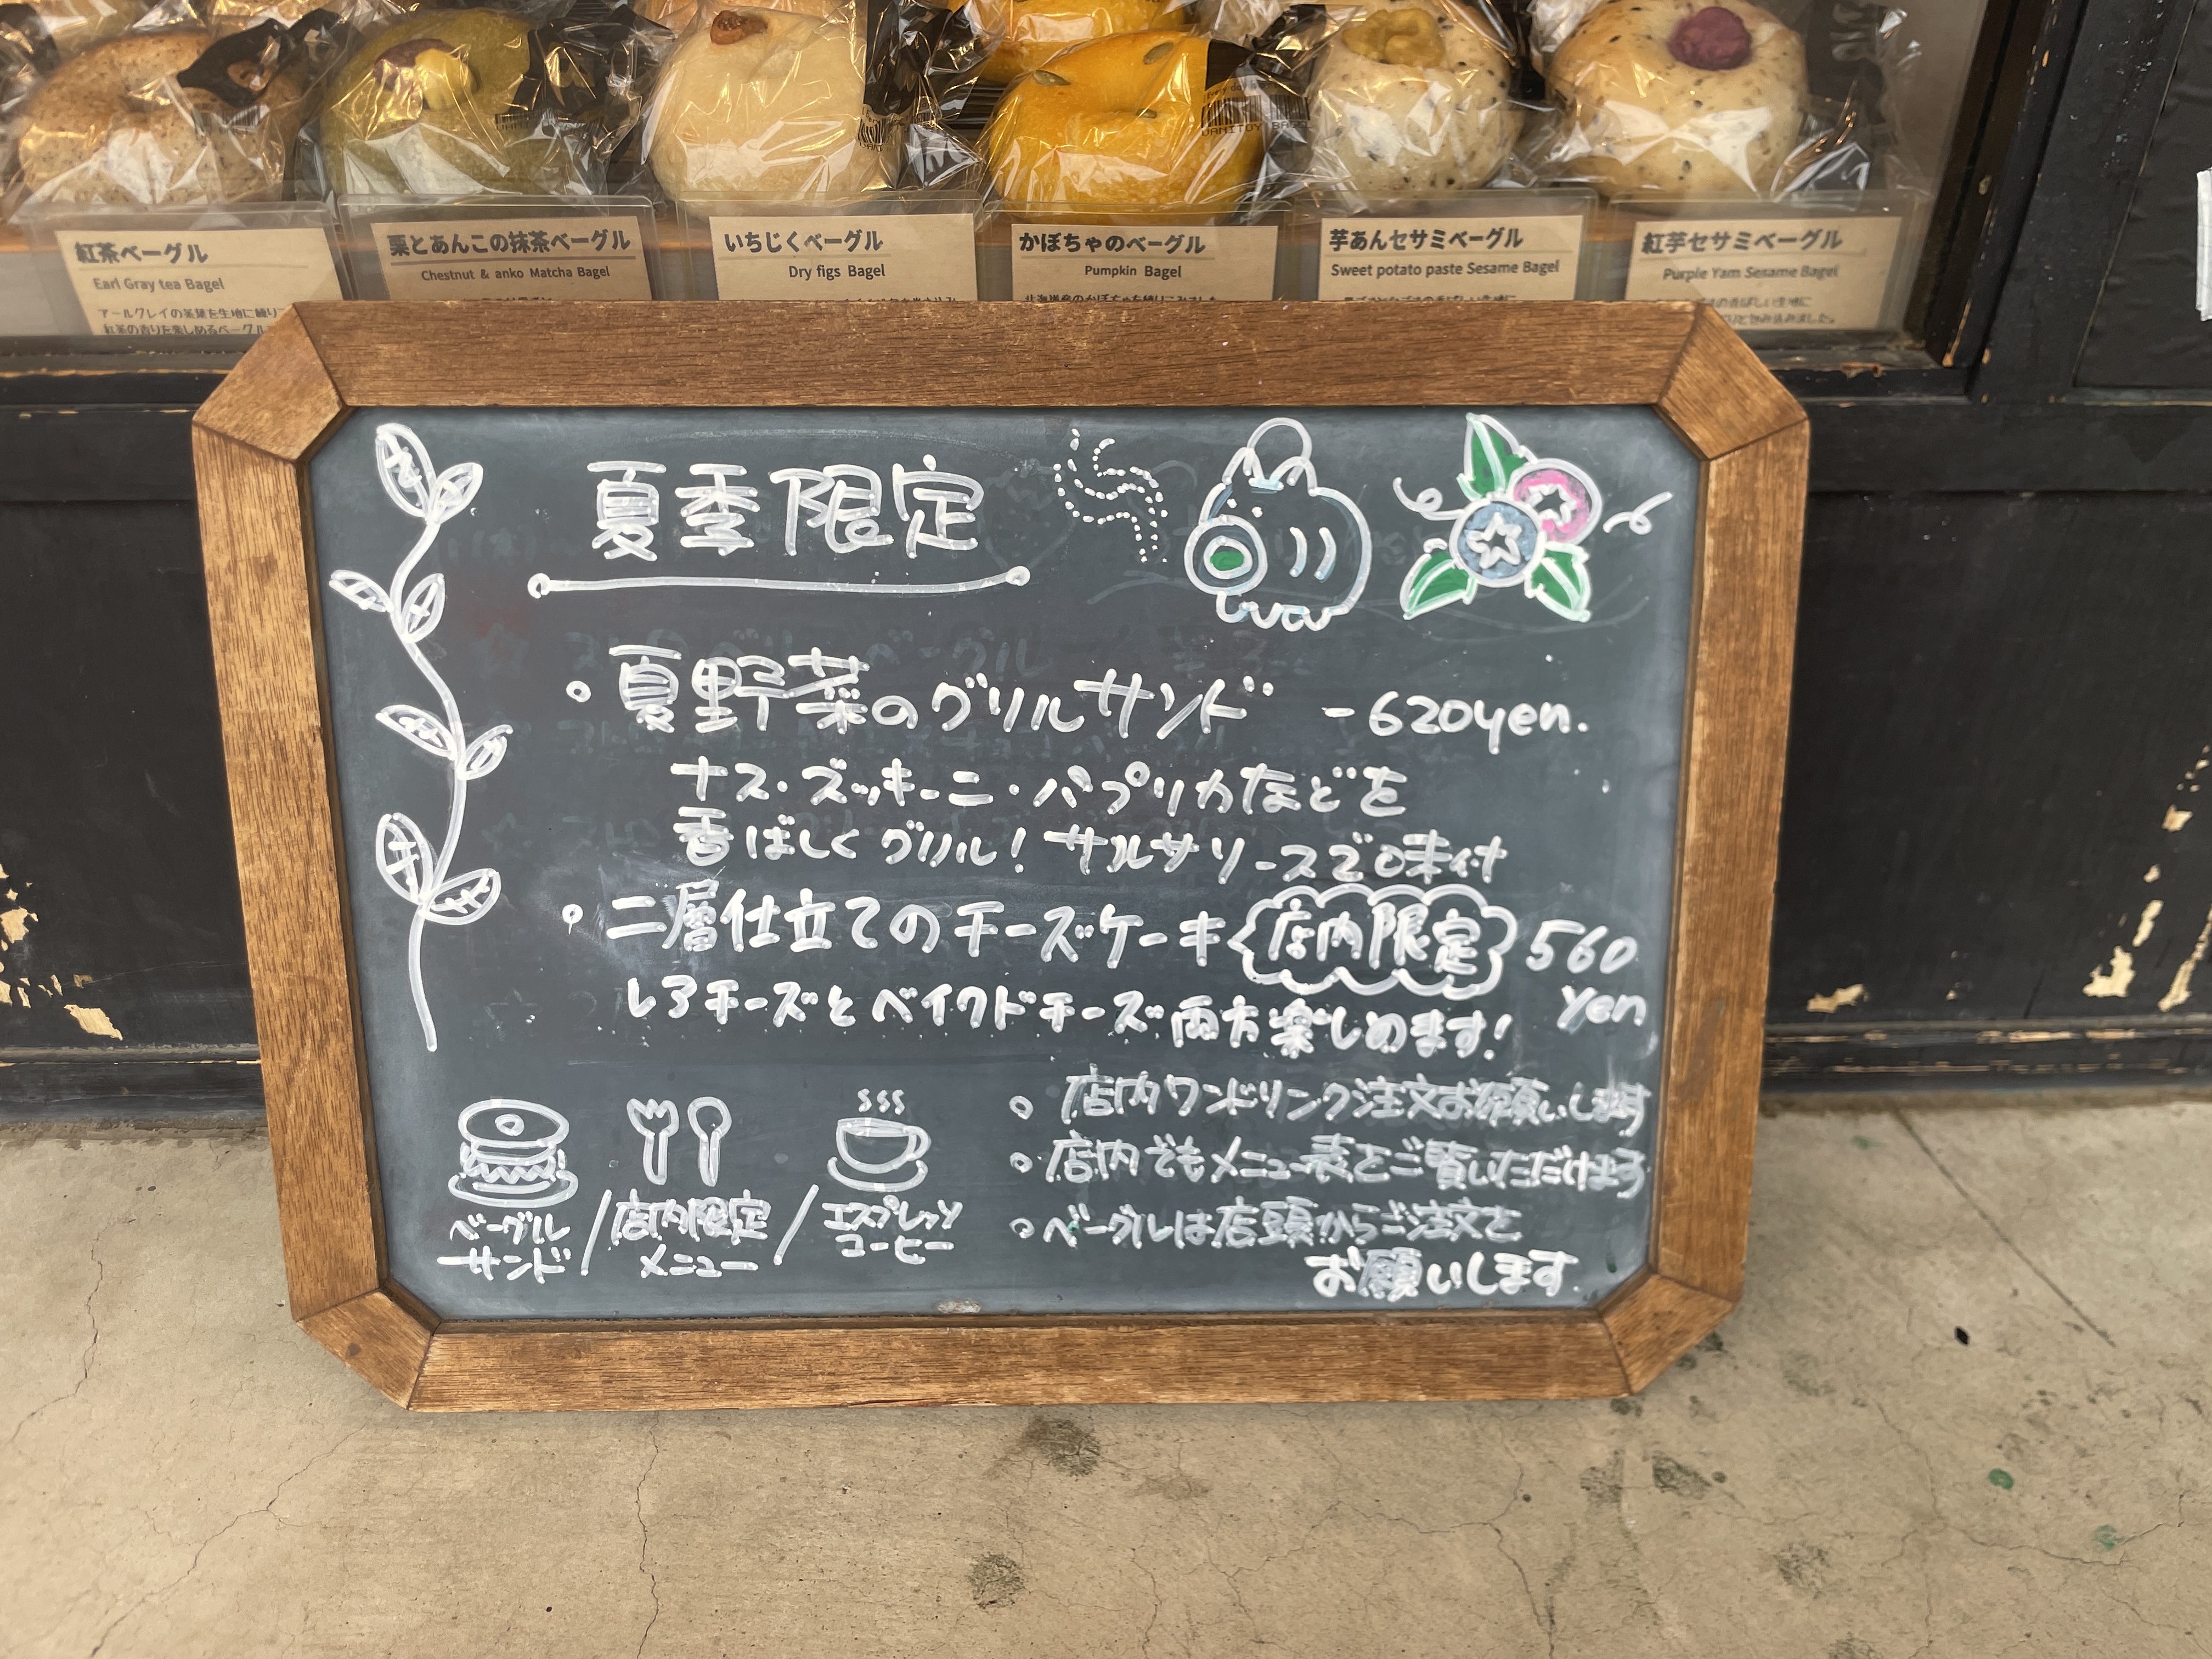 紅茶ベーグル
Earl Gray tea Bagel
アールグレイの茶葉を生地に練り
紅茶の香りを楽しめるベーグル
栗とあんこの抹茶ベーグル
Chestnut & anko Matcha Bagel
いちじくベーグル
Dry figs Bagel
かぼちゃのベーグル
Pumpkin Bagel
北海道産のかぼちゃを練りこみました
芋あんセサミベーグル
Sweet potato paste Sesame Bagel
紅芋セサミベーグル
Purple Yam Sesame Bagel
夏季限定
・夏野菜のグリルサンド -620yen.
ナス・ズッキーニ・パプリカなどを
香ばしくグリル!サルサソースで味付
・二層仕立てのチーズケーキ 店内限定 560
yen
レアチーズとベイクドチーズ両方楽しめます!
・店内ワンドリンク注文お願いします
・店内でもメニュー表をご覧いただけます
・ベーグルは店頭からご注文を
お願いします.
ベーグル
サンド/店内限定
メニュー/エスプレッソ
コーヒー